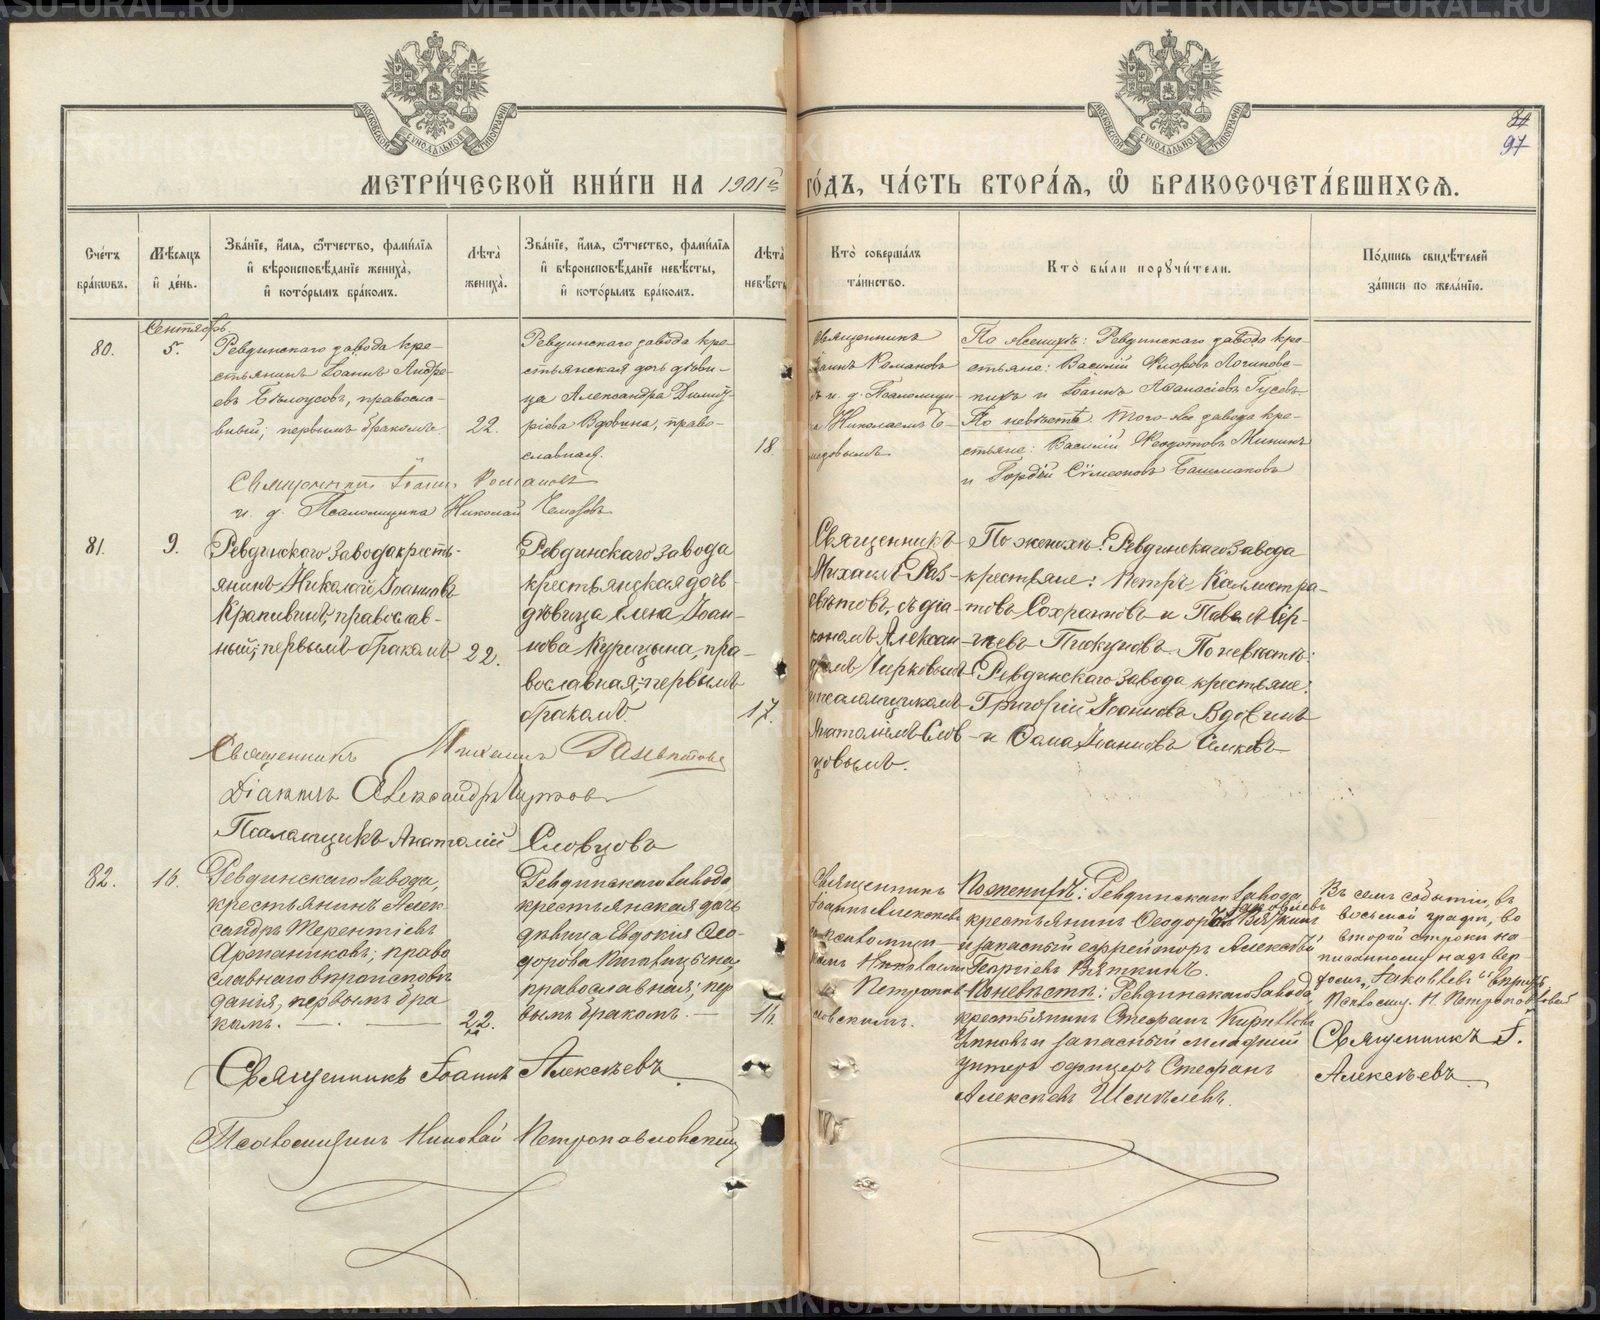 МЕТРИ́ЧЕСКОЙ КНИ́ГИ НА 1901й ГО́ДЪ, ЧА́СТЬ ВТОРА́Я, Ѽ БРАКОСОЧЕТА́ВШИХСЯ.
97
Сче́тъ бра́кωвъ.
Мѣ́сяцъ и҆ де́нь.
Зва́нїе, и҆́мя, ѻ҆́тчество, фами́лїя и҆ вѣроисповѣ́данїе жениха̀, и҆ кото́рымъ бра́комъ.
Лѣта̀ жениха̀.
Зва́нїе, и҆́мя, ѻ҆́тчество, фами́лїя и҆ вѣроисповѣ́данїе невѣ́сты, и҆ кото́рымъ бра́комъ.
Лѣта̀ невѣ́сты
Кто̀ соверша́лъ та́инство.
Кто̀ бы́ли порꙋчи́тели.
По́дпись свидѣ́телей за́писи по жела́нїю.
80.
Сентябрь
5.
Ревдинскаго завода кре-
стьянинъ Іоаннъ Андре-
евъ Бѣлоусовъ, правосла-
вный; первымъ бракомъ.
22.
Ревдинскаго завода кре-
стьянская дочь дѣви-
ца Александра Димит-
ріева Вдовина, право-
славная.
18.
Священникъ
Іоаннъ Романовъ
съ и. д. Псаломщи-
ка Николаемъ
По женихѣ: Ревдинскаго завода кре-
стьяне: Василій Флоровъ Логиновс-
кихъ и Іоаннъ Аѳанасіевъ Гусевъ
По невѣстѣ того-же завода кре-
стьяне: Василій Ѳеодотовъ Мининъ
и Гордѣй Сѵмеоновъ Башмаковъ
Священникъ Іоаннъ Романовъ
и. д. Псаломщика Николай
81.
9.
Ревдинскаго завода кресть-
янинъ Николай Іоанновъ
Крапивинъ, православ-
ный; первымъ бракомъ
22.
Ревдинскаго завода
крестьянская дочь
дѣвица Елена Іоан-
нова Курицына, пра-
вославная; первымъ
бракомъ.
17.
Священникъ
Михаилъ Раз-
свѣтовъ, съ діа-
кономъ Алексан-
дромъ Чирковымъ
и псаломщикомъ
Анатоліемъ Слов-
цовымъ.
По женихѣ: Ревдинскаго завода
крестьяне: Петръ Каллистра-
товъ Сохранновъ и Павелъ Сер-
гѣевъ Пискуновъ. По невѣстѣ:
Ревдинскаго завода крестьяне:
Григорій Іоанновъ Вдовинъ
и Ѳома Іоанновъ
Священникъ Михаилъ Разсвѣтовъ
Діаконъ Александръ Чирковъ
Псаломщикъ Анатолій Словцовъ
82.
16.
Ревдинскаго завода,
крестьянинъ Алек-
сандръ Терентіевъ
право
славнаго вѣроисповѣ
данія, первымъ бра
комъ.
22.
Ревдинскаго завода,
крестьянская дочь
дѣвица Евдокія Ѳео-
дорова
православная; пер
вымъ бракомъ.
16.
Священникъ
Іоаннъ Алексѣевъ
и псаломщи-
комъ Николаемъ
Петропав
ловскимъ.
По женихѣ: Ревдинскаго завода,
Іаковлевъ
крестьянинъ Ѳеодоръ Вяткинъ
и запасный ефрейторъ Алексѣй
Георгіевъ Вяткинъ.
По невѣстѣ: Ревдинскаго завода,
крестьянинъ Стефанъ Кирилловъ
и запасный младшій
унтеръ офицеръ Стефанъ
Алексѣевъ
Въ семъ событіи, въ
восьмой графѣ, во
второй строкѣ на-
писанному надъ вер-
хомъ „Іаковлевъ“ вѣрить
Псаломщ. Н. Петропавловскій
Священникъ І.
Алексѣевъ
Священникъ Іоаннъ Алексѣевъ
Псаломщикъ Николай Петропавловскій
METRIKI.GASU-URAL.RU